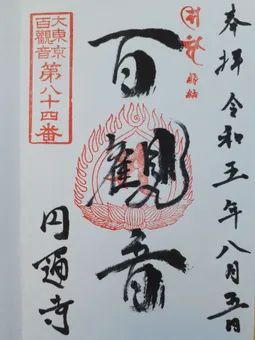 奉拝 令和五年八月五日
百観音
大東京
百觀音
第八十四番
円通寺